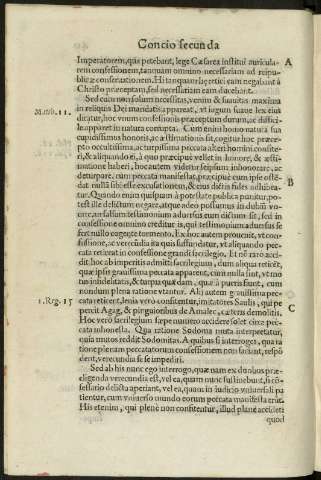 Concio secunda
Imperatorem, quas petebant, lege Cæsarea institui auricula-
rem confessionem, tanquam omnino necessariam ad reipu-
blicæ conseruationem. Hi tanquam hæretici eam negabant à
Christo præceptam, sed necessariam eam ducebant.
Sed cum non solum necessitas, verùm & suauitas maxima
in reliquis Dei mandatis appareat, vt iugum suaue lex eius
dicatur, hoc vnum confessionis præceptum durum, ac diffici-
le apparet in natura corrupta. Cum enim homo natura sua
cupidissimus honoris, ac æstimationis sit, cogitur hoc præce-
pto occultissima, ac turpissima peccata alteri homini confite-
ri, & aliquando ei, à quo præcipuè vellet in honore, & æsti-
matione haberi, hoc autem videtur seipsum inhonorare, ac
deturpare, cum peccata manifestat, præcipuè cum ipse osté-
dat nulla libesse excusationem, & eius dictis fides adhibea-
tur. Quando enim quispiam à potestate publica punitur, po-
test ille delictum negare, atque adeo possumus in dubiū vo-
care, an falsum testimonium aduersus eum dictum sit, sed in
confessione omnino creditur is, qui testimonium aduersus se
fert nullo cogente tormento. Ex hoc autem prouenit, vt con-
fessione, ac verecūdia ita quis suffundatur, vt aliquando pec-
cata retineat in confessione grandi sacrilegio. Et nō raro acci-
dit, hoc ab imperitis admitti sacrilegium, dum aliqua reticét,
quæ ipsis grauissima peccata apparent, cum nulla sint, vt mo-
tus infidelitatis, & turpia quædam, quæ à pueris fiunt, cum
nondum plena ratione vtantur. Alij autem grauissima pec-
cata reticent, leuia verò confitentur, imitatores Saulis, qui pe-
percit Agag, & pinguioribus de Amalec, cæteris demolitis.
Hoc verò sacrilegium sæpe numero accidere solet circa pec-
cata inhonesta. Qua ratione Sodoma muta interpretatur,
quia mutos reddit Sodomitas. A quibus si interroges, qua ra-
tione plenam peccatorum confessionem non faciant, respō-
dent, verecundia se impediri.
Sed ab his nunc ego interrogo, quænam ex duobus præ-
eligenda verecundia est, vel ea, quam nunc sustinebunt, si cō-
fessario delicta aperiant, vel ea, quam in iudicio vniuersali pa-
tientur, cum vniuerso mundo eorum peccata manifesta erūt.
His etenim, qui plenè non confitentur, illud planè accidet:
quod
Matth. 11.
1. Reg. 15
A
B
C